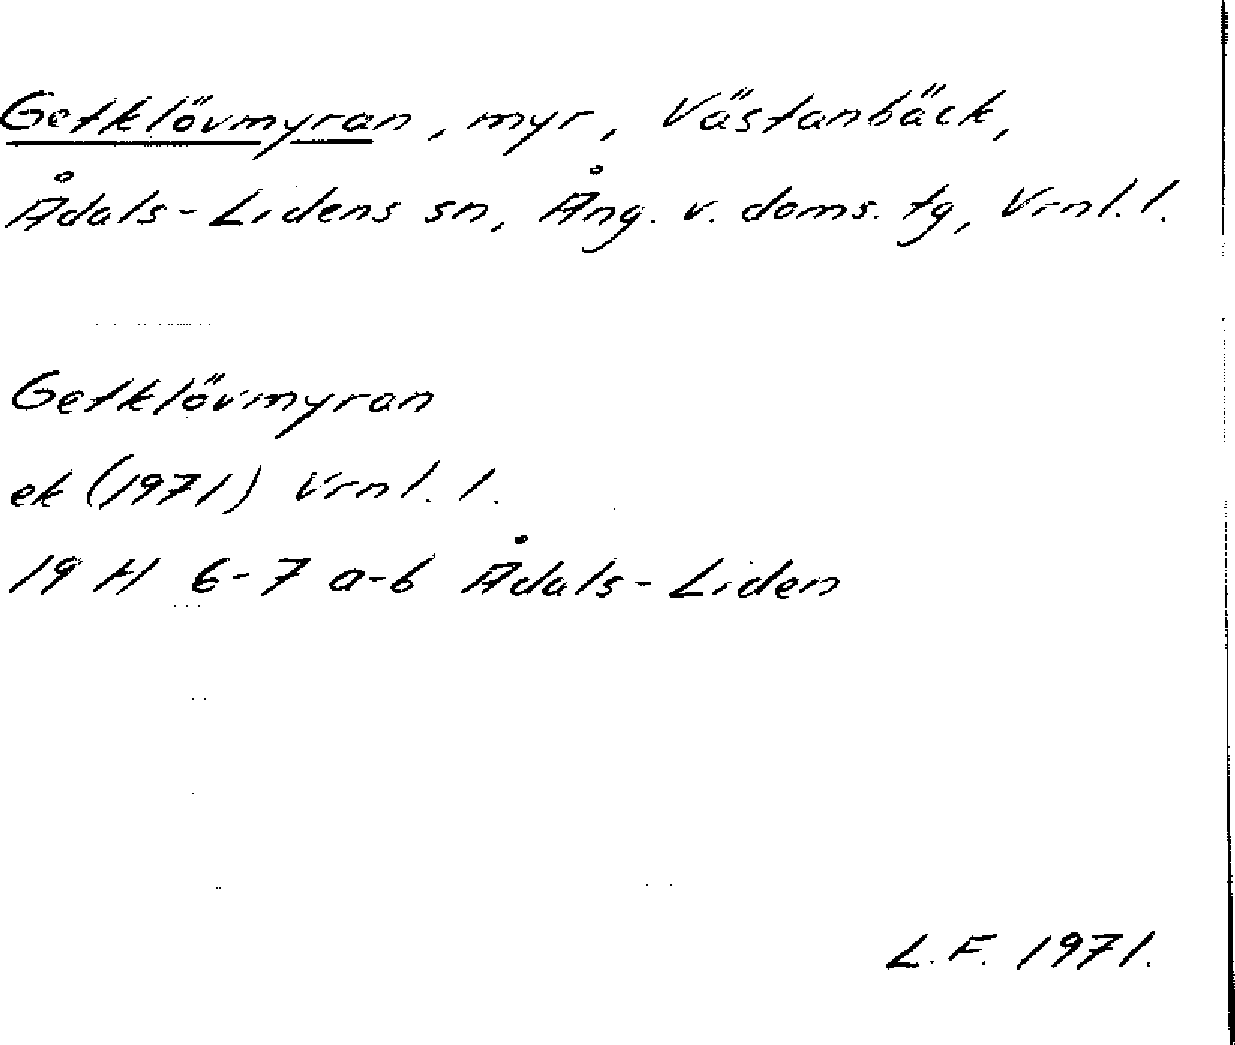 Getklövmyran, myr, Västanbäck,
Ådals-Lidens sn, Ång. v. doms. tg, Vrnl. l.
Getklövmyran
ek (1971) Vrnl. l.
19 H 6-7 a-b Ådals-Liden
L.F. 1971.